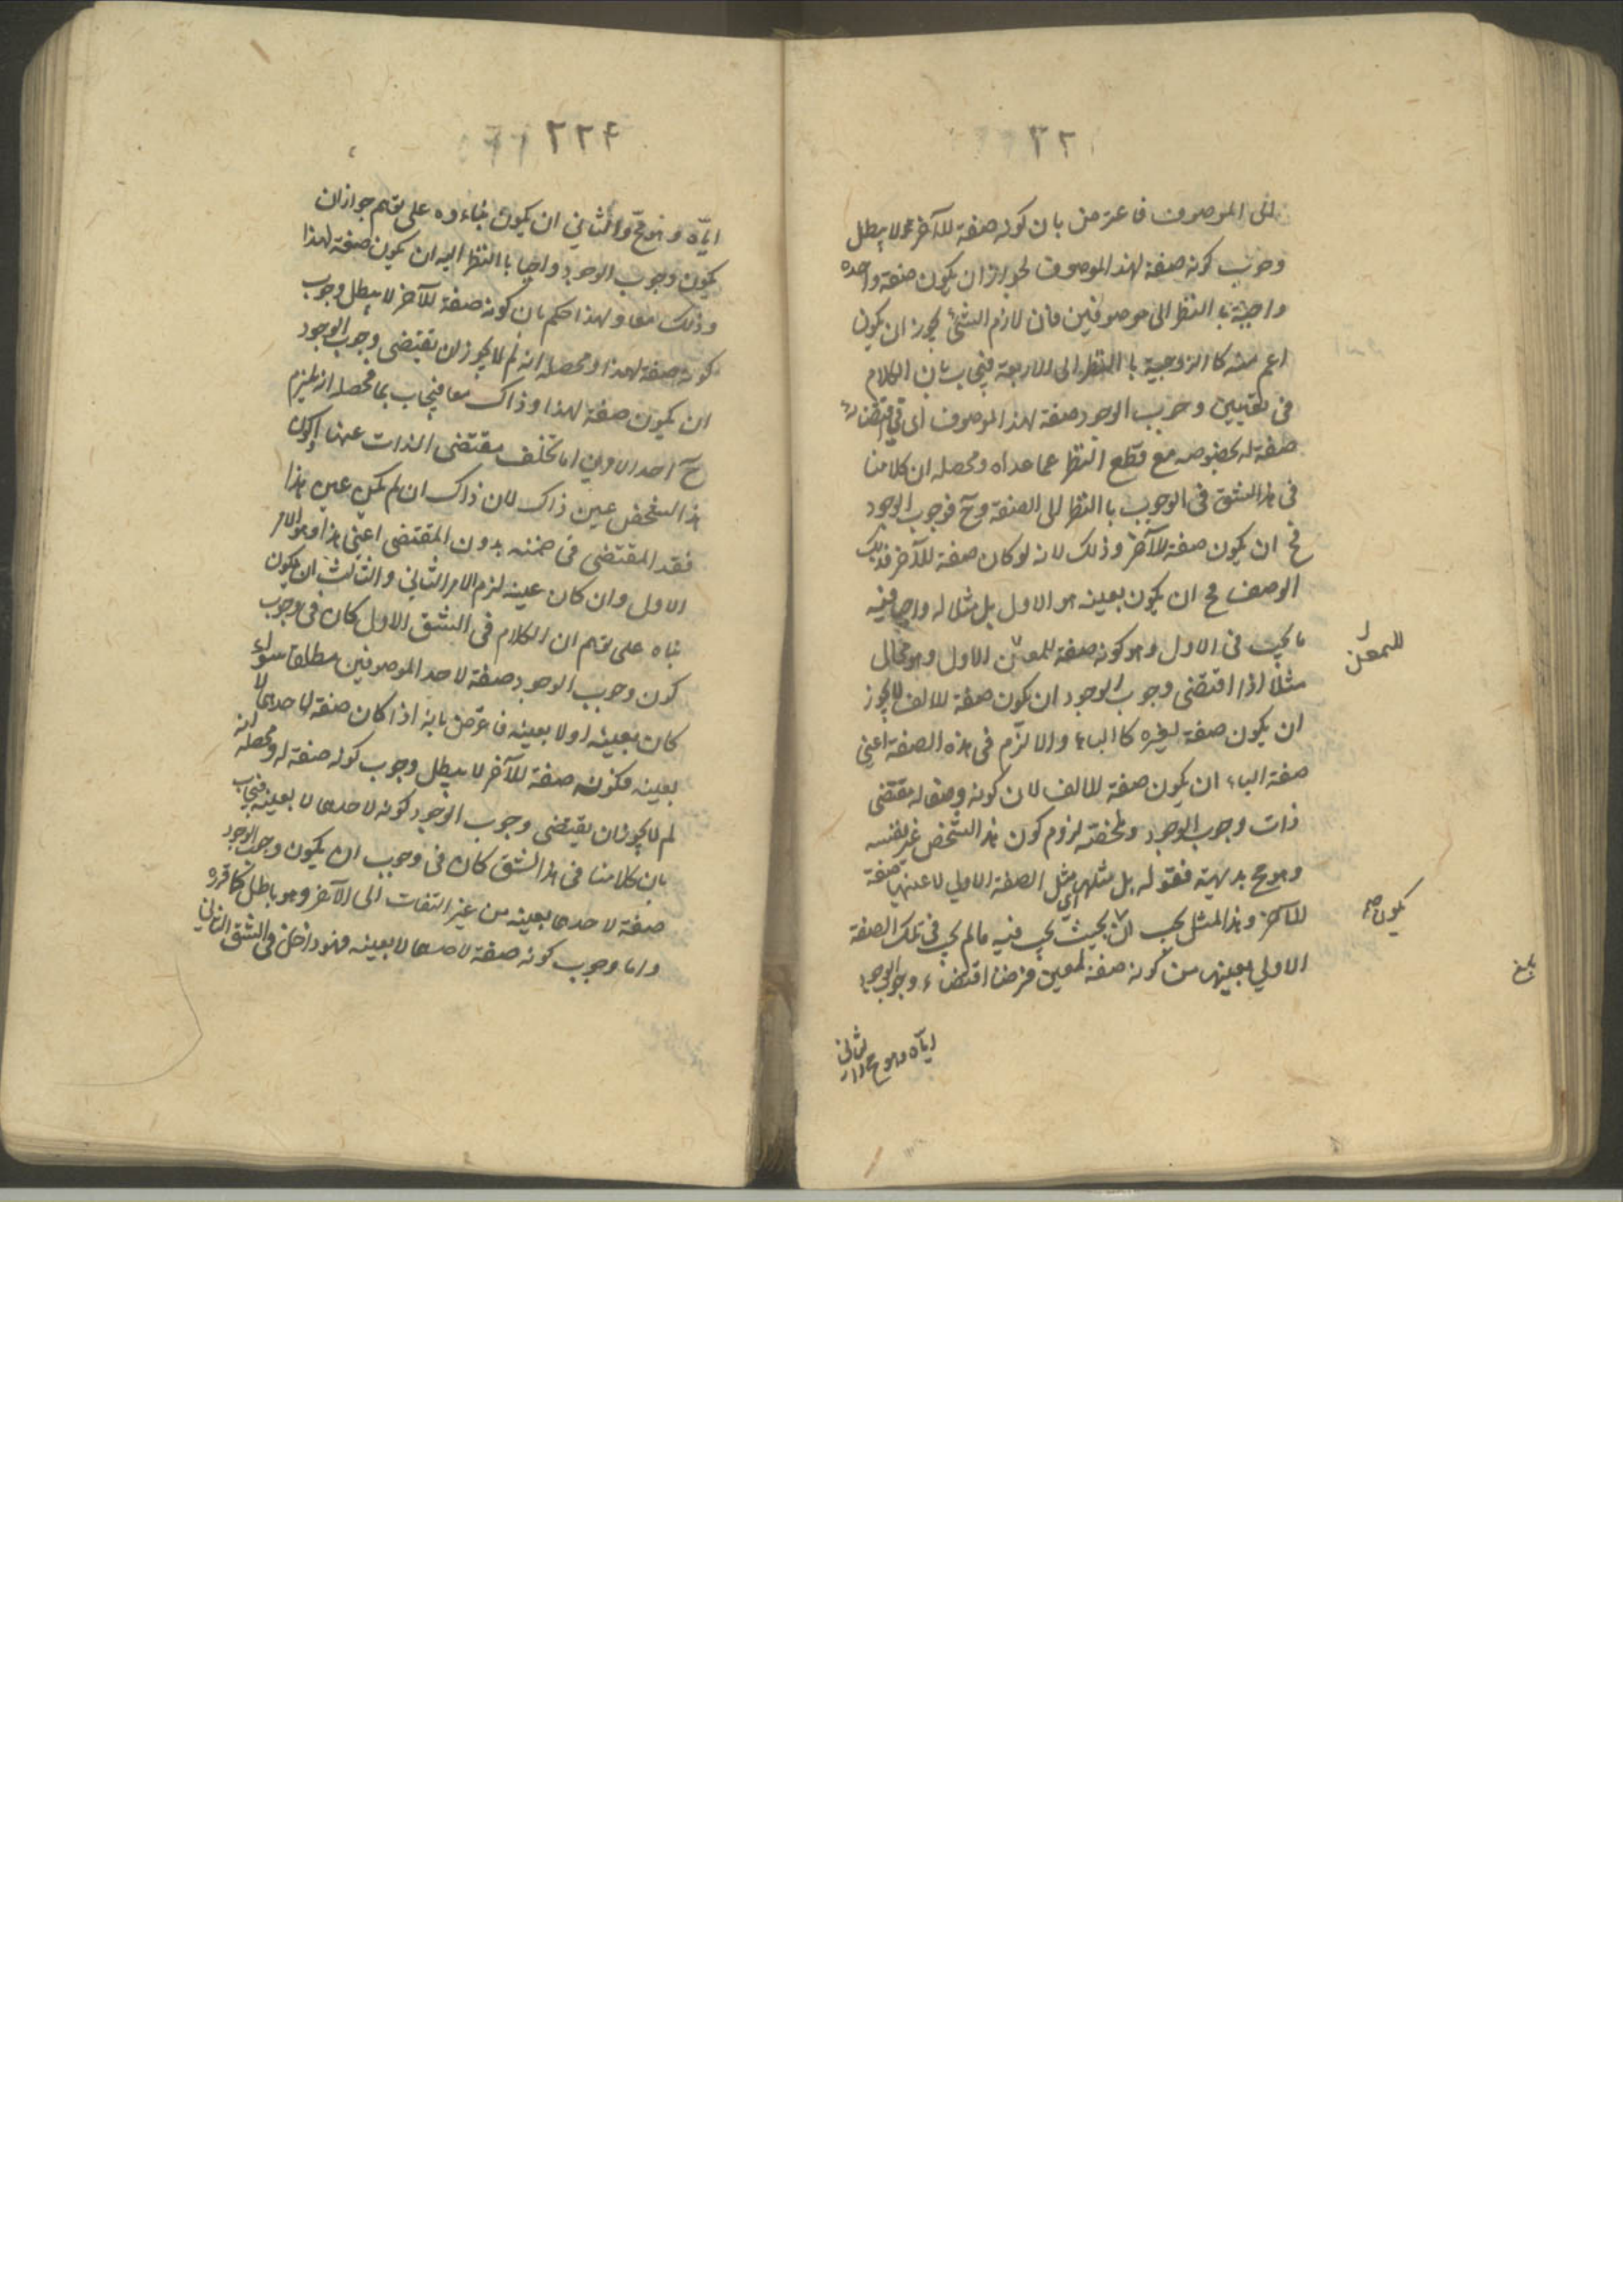 ٣٢
الى الموصوف فاعترض بان كونه صفة للآخر لا يبطل
وجوب كونه صفة لهذا الموصوف لجواز ان يكون صفة واحدة
واجبة با النظر الى موصوفين فان لازم الشئ يجوز ان يكون
اعم منه كا الزوجية با النظر الى الاربعة فيجاب بان الكلام
فى تعيين وجوب الوجود صفة لهذا الموصوف اى فى اقتضائه
صفة له بخصوصه مع قطع النظر عما عداه ومحصله ان كلامنا
فى هذا الشق فى الوجوب با النظر الى الصفة وح فوجوب الوجود
مح ان يكون صفة للآخر وذلك لانه لو كان صفة للآخر فذلك
الوصف مح ان يكون بعينه هو الاول بل مثلا له واجبا فيه
ما يجب فى الاول وهو كونه صفة للمعين الاول وهو محال
مثلا اذا اقتضى وجوب الوجود ان يكون صفة للالف لا يجوز
ان يكون صفة لغيره كا الباء والا لزم فى هذه الصفة اعنى
صفة الباء ان يكون صفة للالف لان كونه وصفا له مقتضى
ذات وجوب الوجود وملخصه لزوم كون هذا الشخص غير نفسه
وهو مح بديهية فقوله بل مثلها اى مثل الصفة الاولي لا عينها صفة
للآخر وهذا المثل يجب ان بحيث يجب فيه ما لم يجب فى تلك الصفة
الاولي بعينها من كونه صفة لمعين فرضنا اقتضاء وجوب الوجود
للمعين
يكون صح
بلغ
اياه وهو مح والثاني
٢٢٤
اياه وهو مح والثاني ان يكون بناءوه على توهم جواز ان
يكون وجوب الوجود واجبا با النظر اليه ان يكون صفة لهذا
وذلك معا ولهذا حكم بان كونه صفة للآخر لا يبطل وجوب
كونه صفة لهذا ومحصله انه لم لا يجوز ان يقتضى وجوب الوجود
ان يكون صفة لهذا وذاك معا فيجاب بما محصله انه يلزم
ح احد الامرين اما تخلف مقتضى الذات عنها او كون
هذا الشخص عين ذاك لان ذاك ان لم يكن عين هذا
فقد المقتضى فى ضمنه بدون المقتضى اعنى هذا وهو الامر
الاول وان كان عينه لزم الامر الثاني والثالث ان يكون
بناه على توهم ان الكلام فى الشق الاول كان فى وجوب
كون وجوب الوجود صفة لاحد الموصوفين مطلقا سواء
كان بعينه او لا بعينه فاعترض بانه اذا كان صفة لاحدهما لا
بعينه فكونه صفة للآخر لا يبطل وجوب كونه صفة له ومحصله انه
لم لا يجوز ان يقتضى وجوب الوجود كونه لاحدهما لا بعينه فيجاب
بان كلامنا فى هذا الشق كان فى وجوب ان يكون وجوب الوجود
صفة لاحدهما بعينه من غير التفات الى الآخر وهو باطل كما قرره
واما وجوب كونه صفة لاحدهما لا بعينه فهو داخل فى الشق الثاني